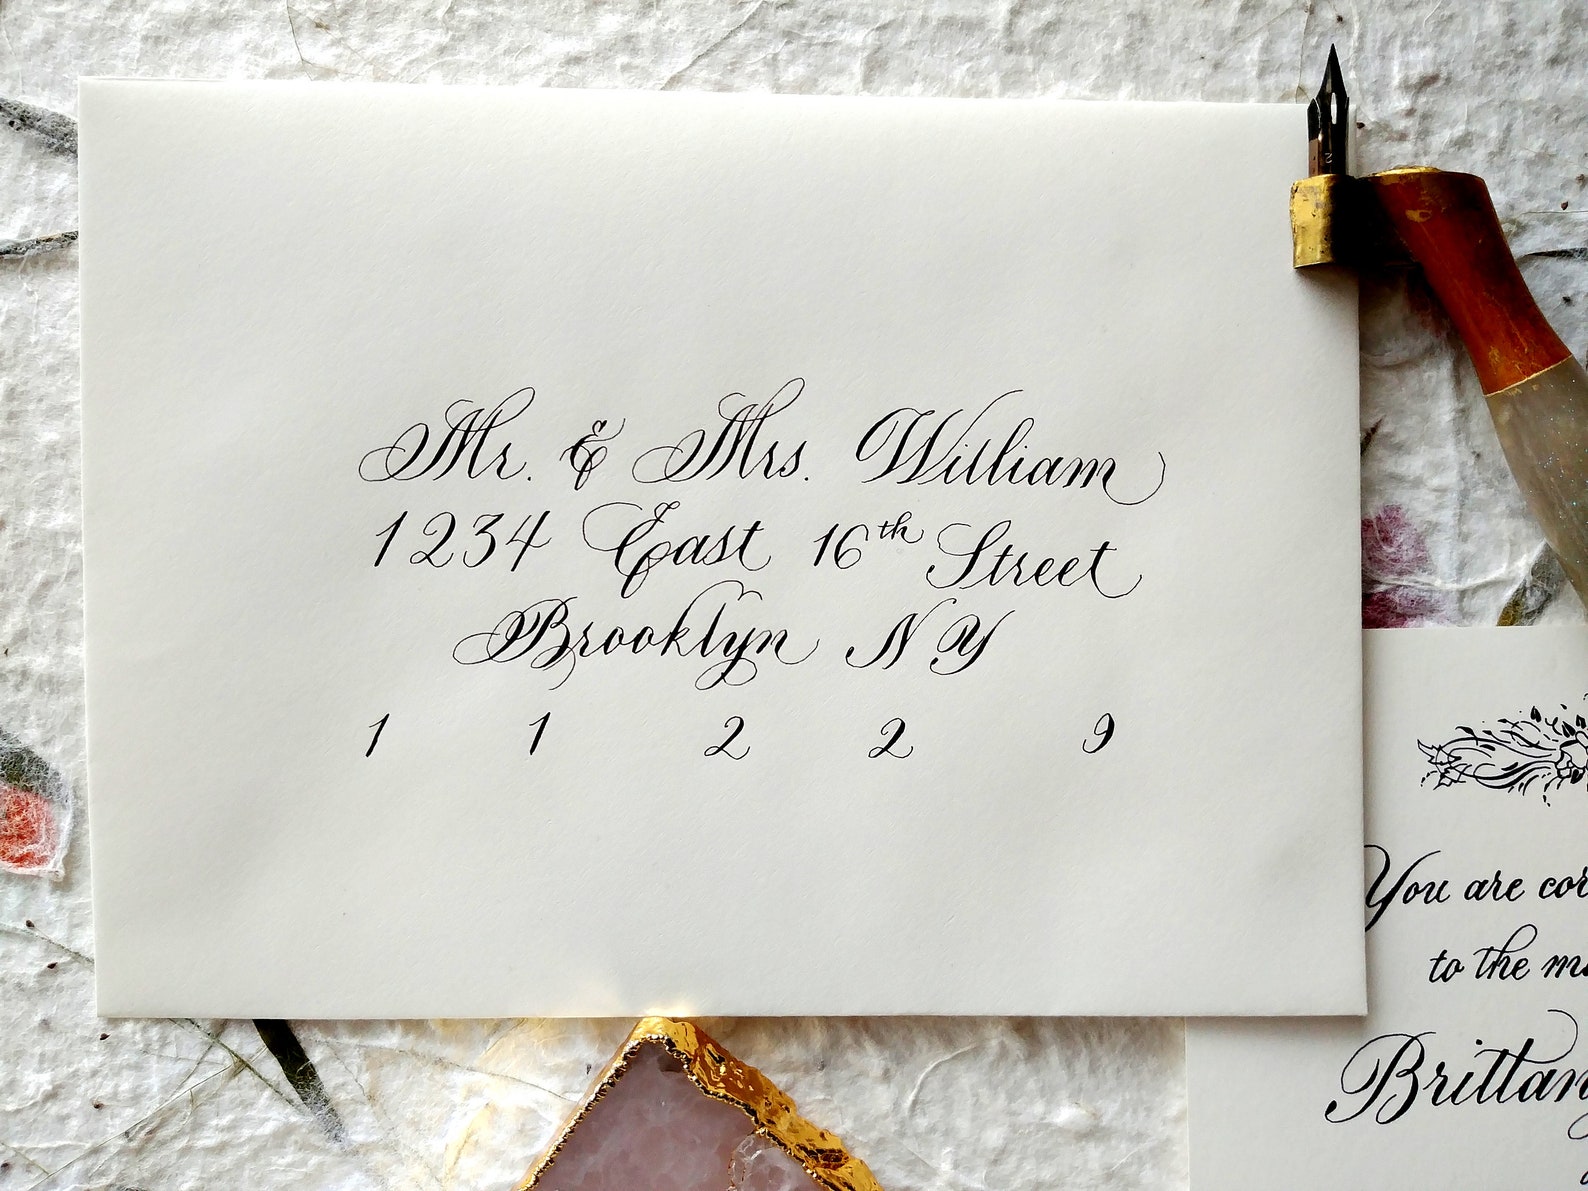 Mr. & Mrs. William
1234 East 16th Street
Brooklyn NY
1 1 2 2 9
You are
to the